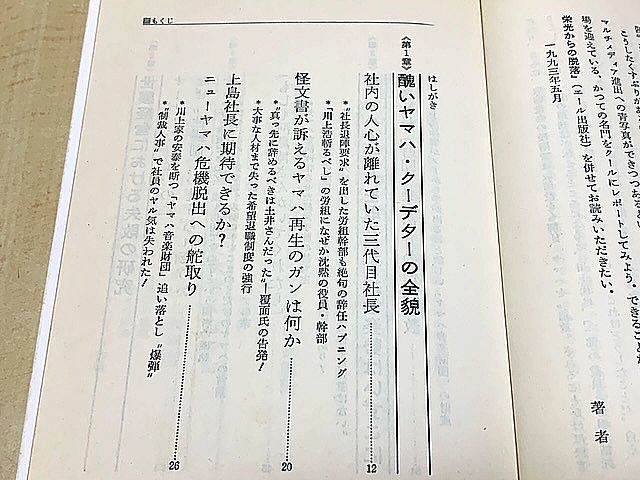 こうしたくすぶり
マルチメディア進出への青写真ができつつある
場を迎えている、かつての名門をクールにレポートしてみよう。できることな
栄光からの脱落』（エール出版社）を併せてお読みいただきたい。
一九九三年五月
著者
もくじ
はしがき
〈第1章〉醜いヤマハ・クーデターの全貌
社内の人心が離れていた三代目社長 12
＊“社長退陣要求”を出した労組幹部も絶句の辞任ハプニング
＊「川上浩斬るべし」の労組になぜか沈黙の役員・幹部
怪文書が訴えるヤマハ再生のガンは何か 20
＊“真っ先に辞めるべきは土井さんだった”―覆面氏の告発！
＊大事な人材まで失った希望退職制度の強行
上島社長に期待できるか？
ニューヤマハ危機脱出への舵取り 26
＊川上家の安泰を断つ「ヤマハ音楽財団」追い落とし“爆弾”
＊“制裁人事”で社員のヤル気は失われた！